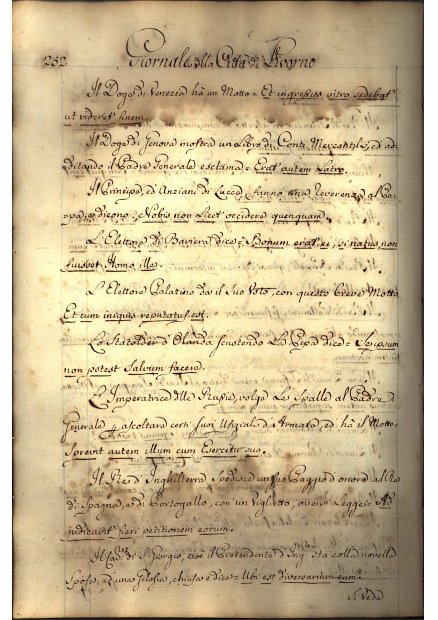 252 Giornale della Città di Livorno
Il Doge di Venezia hà un Motto = Et ingressus intro sedebat
ut videret finem.
Il Doge di Genova mostra un Libro di Conti Mercantili, ed ad-
ditando il Padre Generale esclama = Erat autem Latro.
Il Principe, ed Anziani di Lucca, fanno una Reverenza al Pa-
pa, e dicono, Nobis non licet occidere quenquam.
L'Elettore di Baviera dice; Bonum erat ei, si natus non
fuisset Homo ille.
L'Elettore Palatino dà il suo Voto, con questo breve Motto
Et cum iniquis reputatus est.
Lo Statolder d'Olanda scuotendo La Pipa dice = Seipsum
non potest Salvum facere.
L'Imperatrice delle Russie, volge Le Spalle al Padre
Generale p ascoltare certi suoi Ufiziali d'Armata, ed hà il Motto
Sprevit autem illum cum Exercitu suo.
Il Re d'Inghilterra spedisce un suo Paggio d'onore al Re
di Spagna, e di Portogallo, con un Viglietto, ove si Legge: Ad
judicavit fieri petitionem eorum.
Il Cav. di S. Giorgio, cioè il Pretendente d'Ing. sta colla novella
Sposa, ad una Gelosia, chiusa e dice = Ubi est diversorium eum.
Si Vede